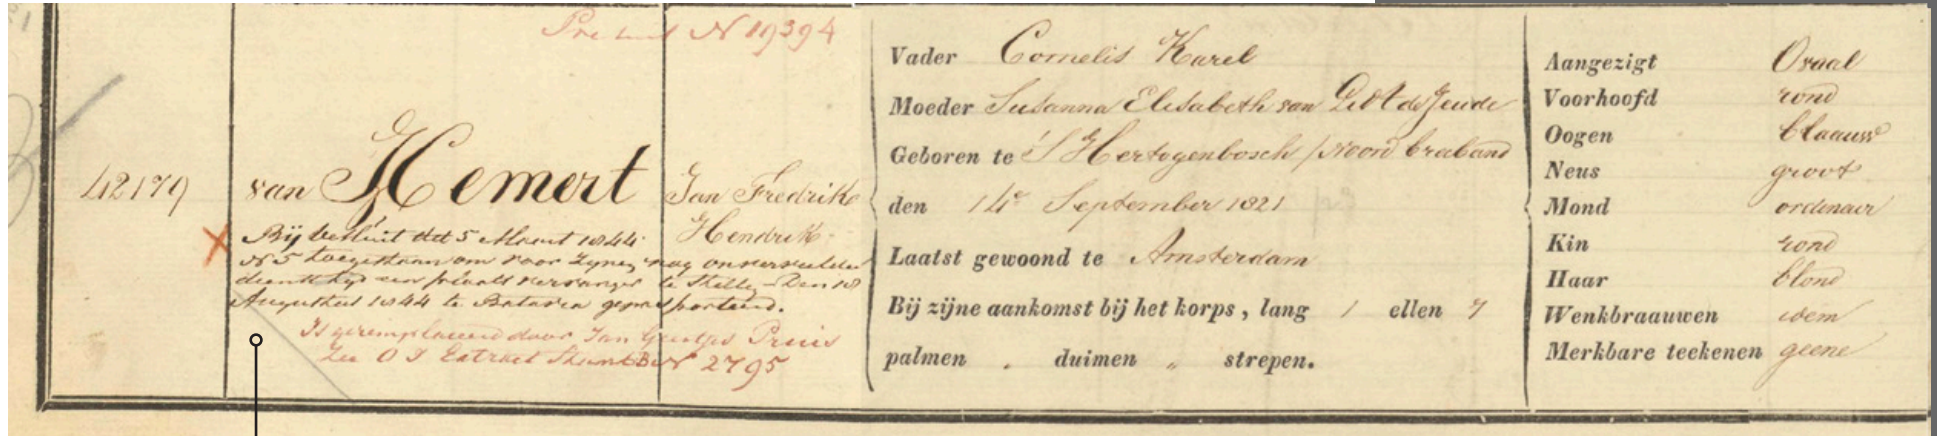 N 19394
42179
van Hemert
Jan Fredrik
Hendrik
Bij besluit dd 5 Maart 1844
N 5 toegestaan om voor zijnen nog onvervulden
diensttijd een plaatsvervanger te stellen Den 18
Augustus 1844 te Batavia gepasporteerd.
Is geremplaceerd door Jan Pruis
Zie O I Extract Stamb N 2795
Vader Cornelis Karel
Moeder Susanna Elisabeth van Lidt de Jeude
Geboren te S Hertogenbosch / Noord braband
den 14e September 1821
Laatst gewoond te Amsterdam
Bij zijne aankomst bij het korps, lang 1 ellen 7
palmen „ duimen „ strepen.
Aangezigt Ovaal
Voorhoofd rond
Oogen blaauw
Neus groot
Mond ordenair
Kin rond
Haar blond
Wenkbraauwen idem
Merkbare teekenen geene